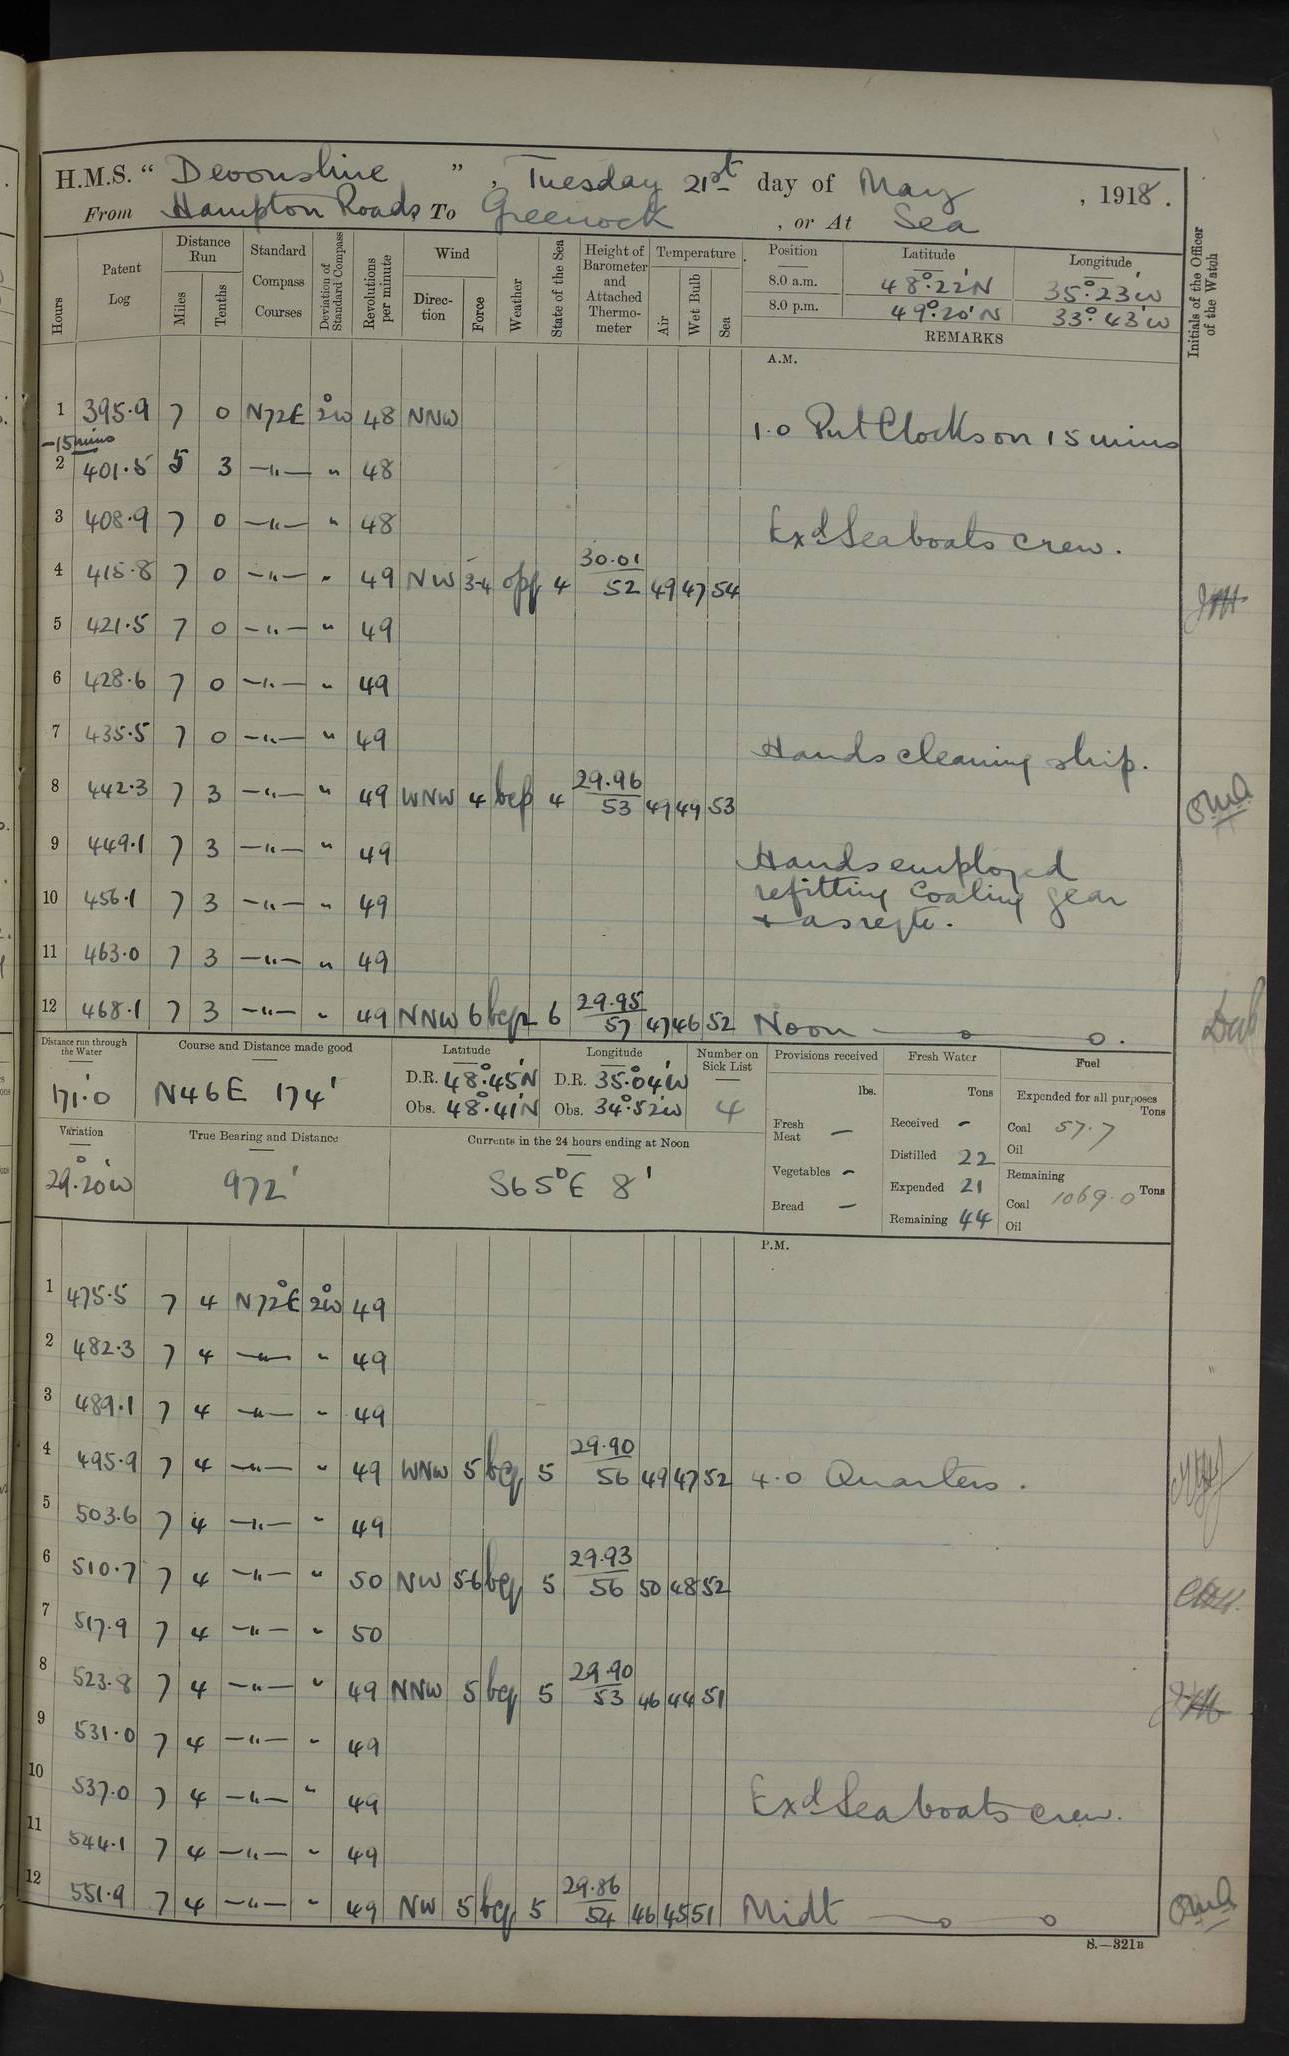 H.M.S. " Devonshire ", Tuesday 21st day of May , 1918.
From Hampton Roads, To Greenock , or At Sea
Hours
Patent Log
Distance Run
Miles
Tenths
Standard Compass Courses
Deviation of Standard Compass
Revolutions per minute
Wind
Direction
Force
Weather
State of the Sea
Height of Barometer and Attached Thermometer
Temperature
Air
Wet Bulb
Sea
Position Latitude Longitude
8.0 a.m. 48°.22'N 35°.23'W
8.0 p.m. 49°.20'N 33°.43'W
REMARKS
Initials of the Officer of the Watch
A.M.
1 395.9 7 0 N72E 2°W 48 NNW
1.0 Put Clocks on 15 mins
-15 mins
2 401.5 5 3 —"— " 48
3 408.9 7 0 —"— " 48
Exd Seaboats crew.
4 415.8 7 0 —"— " 49 NW 3-4 opq 4 30.01 52 49 47 54
5 421.5 7 0 —"— " 49
6 428.6 7 0 —"— " 49
7 435.5 7 0 —"— " 49
Hands cleaning ship.
8 442.3 7 3 —"— " 49 WNW 4 bcp 4 29.96 53 49 49 53
9 449.1 7 3 —"— " 49
Hands employed
refitting Coaling gear
+ as reqte.
10 456.1 7 3 —"— " 49
11 463.0 7 3 —"— " 49
12 468.1 7 3 —"— " 49 NNW 6 6 29.95 57 47 46 52 Noon
Distance run through the Water
171.0
Course and Distance made good
N46E 174'
Latitude
D.R. 48°.45'N
Obs. 48°.41'N
Longitude
D.R. 35°.04'W
Obs. 34°.52'W
Number on Sick List
4
Provisions received
lbs.
Fresh Meat —
Vegetables -
Bread —
Fresh Water
Tons
Received -
Distilled 22
Expended 21
Remaining 44
Fuel
Expended for all purposes
Tons
Coal 57.7
Oil
Remaining
Tons
Coal 1069.0
Oil
Variation
29°.20'W
True Bearing and Distance
972'
Currents in the 24 hours ending at Noon
S65°E 8'
P.M.
1 475.5 7 4 N72°E 2°W 49
2 482.3 7 4 —"— " 49
3 489.1 7 4 —"— " 49
4 495.9 7 4 —"— " 49 WNW 5 bcq 5 29.90 56 49 47 52 4.0 Quarters.
5 503.6 7 4 —"— " 49
6 510.7 7 4 —"— " 50 NW 5-6 bcq 5 29.93 56 50 48 52
7 517.9 7 4 —"— " 50
8 523.8 7 4 —"— " 49 NNW 5 bcq 5 29.90 53 46 44 51
9 531.0 7 4 —"— " 49
10 537.0 7 4 —"— " 49
Exd Seaboats crew.
11 544.1 7 4 —"— " 49
12 551.9 7 4 —"— " 49 NW 5 bcq 5 29.86 54 46 45 51 Midt
S.—321B